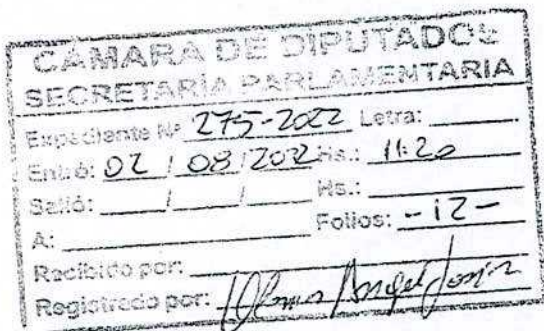 CÁMARA DE DIPUTADOS
SECRETARÍA PARLAMENTARIA
Expediente Nº 275-2022 Letra:
Entró: 02 / 08 / 2022 Hs.: 11:20
Salió: / / Hs.:
A: Folios: -12-
Recibido por:
Registrado por: